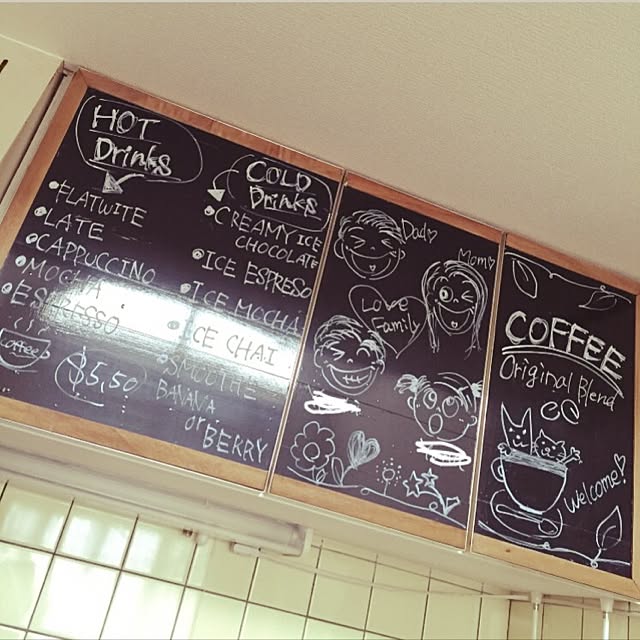 HOT
Drinks
•FLATWITE
•LATE
•CAPPUCCINO
•MOCHA
•ESPRESSO
Coffee
$5,50
COLD
Drinks
•CREAMY ICE
CHOCOLATE
•ICE ESPRESO
•ICE MOCHA
•ICE CHAI
•SMOOTHE
BANANA
or
BERRY
Dad♡
Mom♡
Love
Family
COFFEE
Original Blend
Welcome!